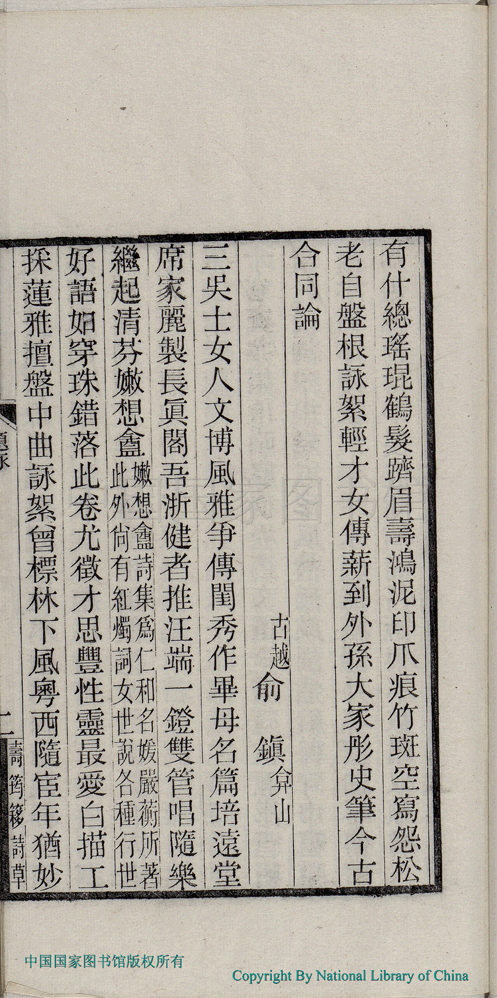 有什總瑤琨鶴髮躋眉壽鴻泥印爪痕竹斑空寫怨松
老自盤根詠絮輕才女傳薪到外孫大家彤史筆今古
合同論
古越俞鎮弇山
三吳士女人文博風雅爭傳閨秀作畢母名篇培遠堂
席家麗製長眞閣吾浙健者推汪端一鐙雙管唱隨樂
繼起清芬嫩想盦嫩想盦詩集爲仁和名媛嚴蘅所著此外尙有紅燭詞女世說各種行世
好語妇穿珠錯落此卷尤徵才思豐性靈最愛白描工
採蓮雅擅盤中曲詠絮曾標林下風粵西隨宦年猶妙
題詠
二
壽筠簃詩草
中国国家图书馆版权所有
Copyright By National Library of China